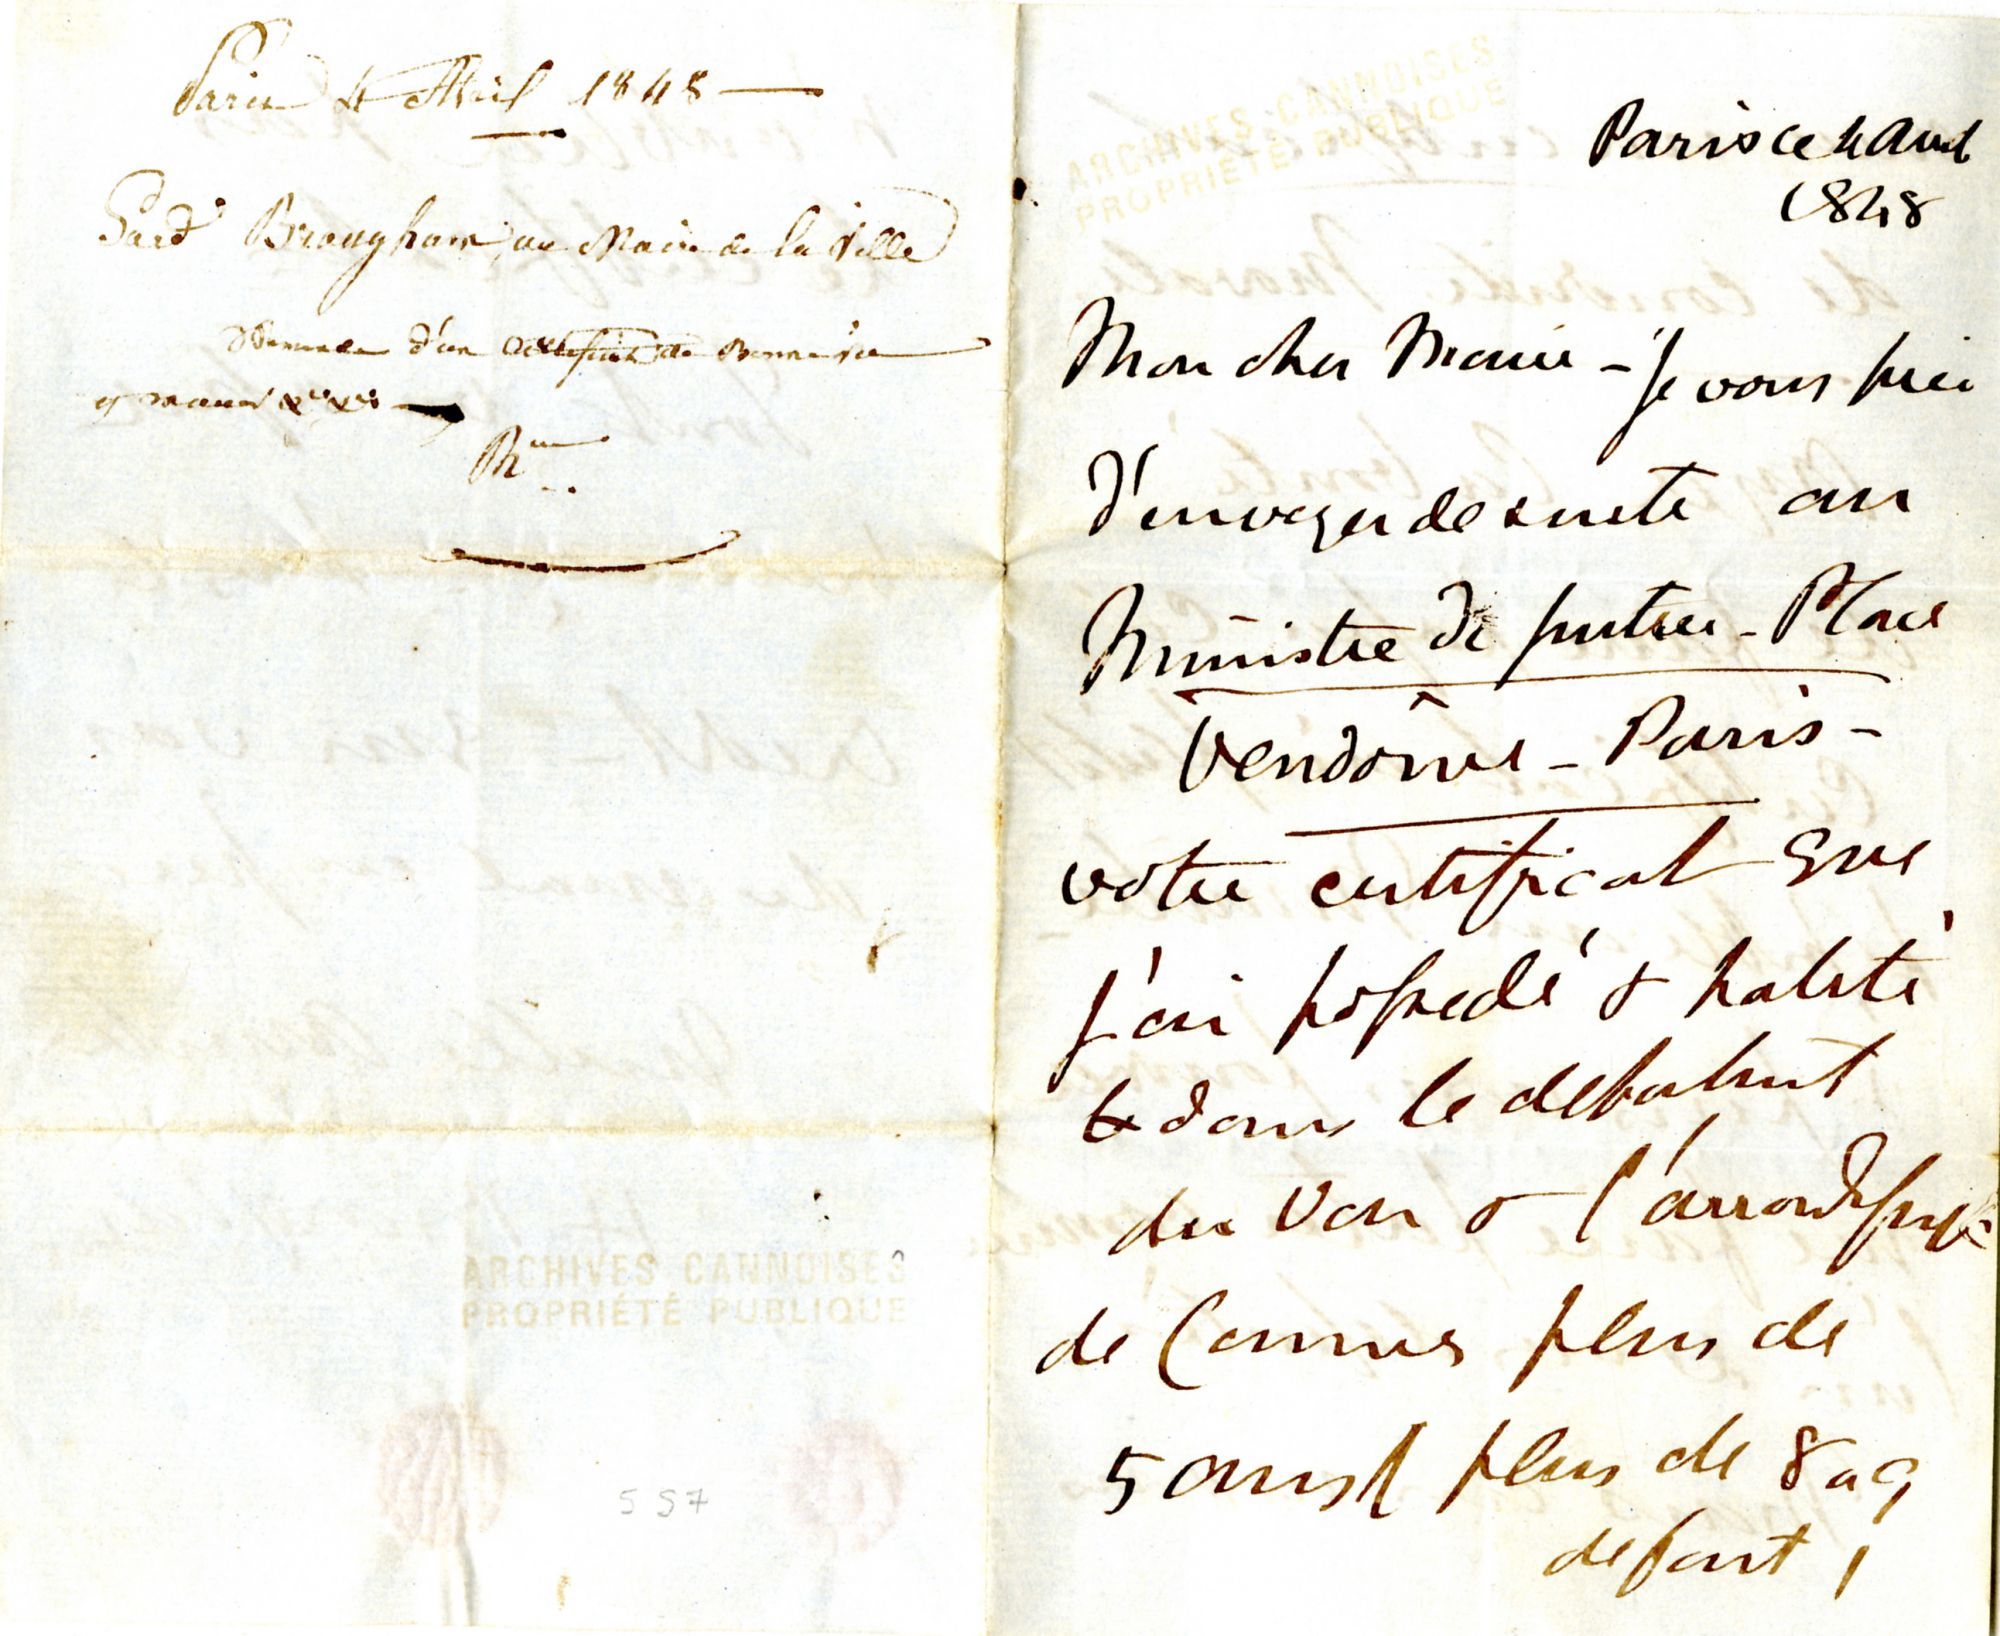 Paris 4 Avril 1848
Lord Brougham au Maire de la Ville
Demande d'un certificat de Bonne vie
et mœurs
ARCHIVES CANNOISES
PROPRIÉTÉ PUBLIQUE
557
ARCHIVES CANNOISES
PROPRIÉTÉ PUBLIQUE
Paris ce 4 Avril
1848
Mon cher Maire - Je vous prie
d'envoyer de suite au
Ministre de Justice - Place
Vendôme - Paris -
votre certificat que
j'ai possedé & habité
dans le debatment
du Var & l'arrondissmt
de Cannes plus de
5 ans, plus de 8 a 9
de fait